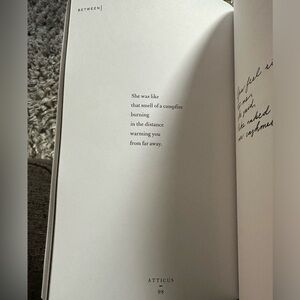 BETWEEN|
She was like
that smell of a campfire
burning
in the distance
warming you
from far away.
ATTICUS
98
you feel
naked
cashmere